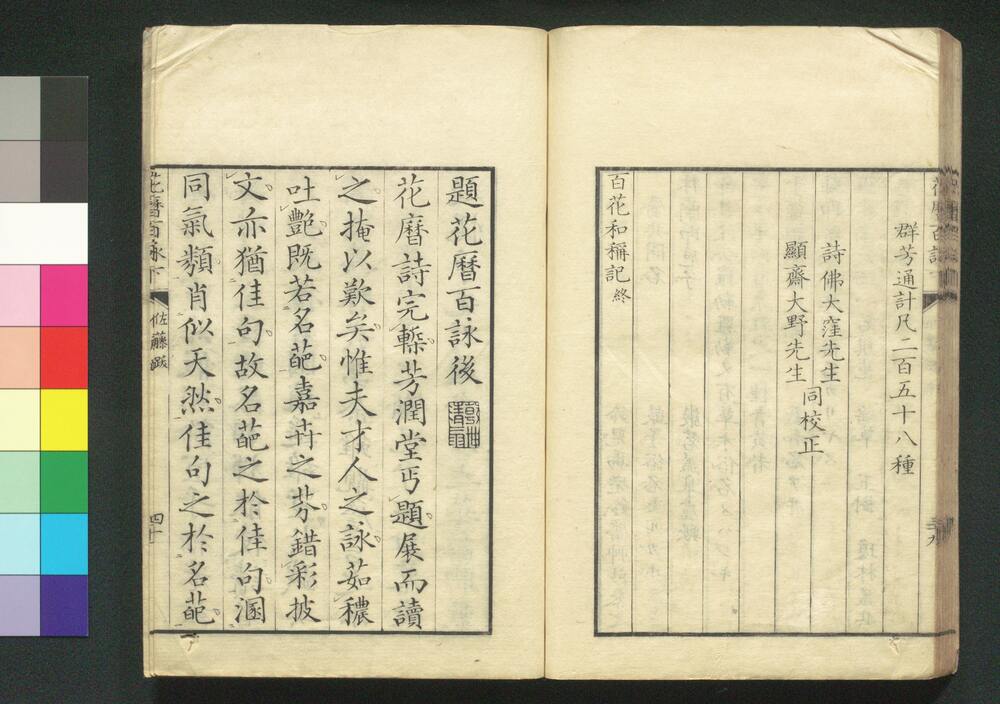 群芳通計凡二百五十八種
詩佛大窪先生
顯齋大野先生
同校正
百花和稱記終
題花曆百詠後
花曆詩完槧芳潤堂丐題展而讀
之掩以歎矣惟夫才人之詠茹穠
吐艷既若名葩嘉卉之芬錯彩披
文亦猶佳句故名葩之於佳句溷
同氣類肖似天然佳句之於名葩
花曆百詠下
佐藤跋
四十